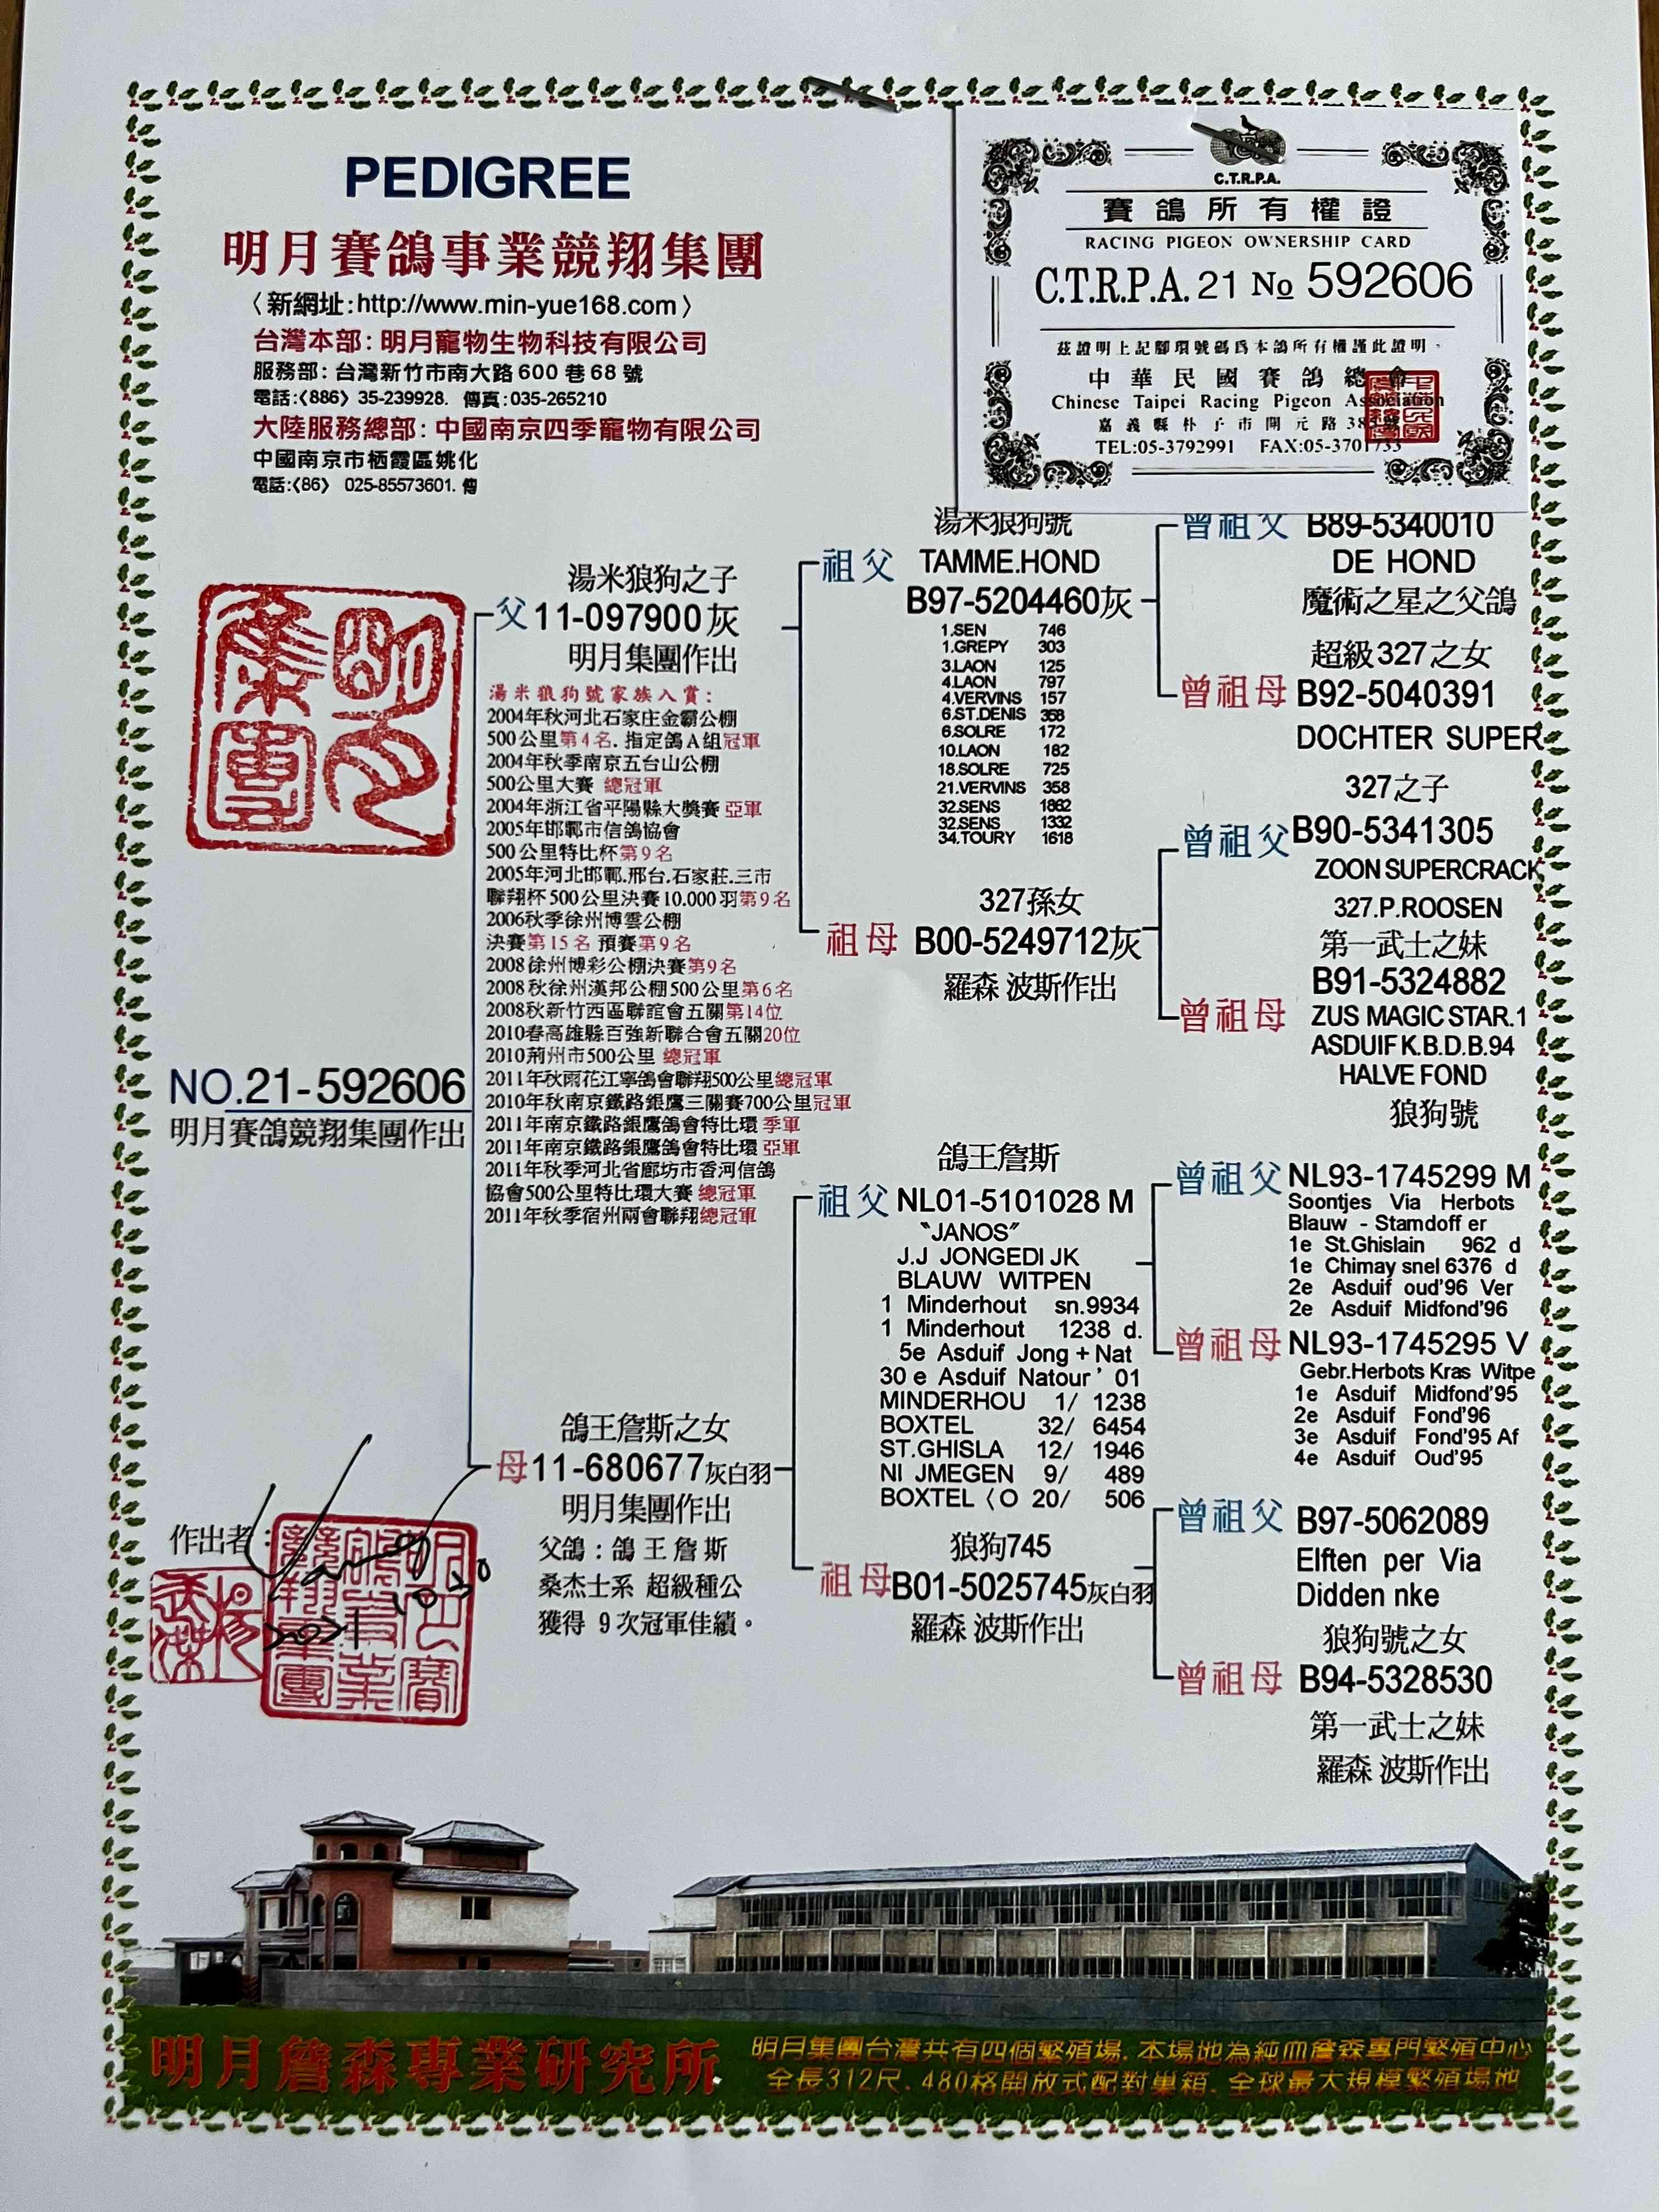 PEDIGREE
明月賽鴿事業競翔集團
〈新網址:http://www.min-yue168.com〉
台灣本部:明月寵物生物科技有限公司
服務部:台灣新竹市南大路600巷68號
電話:〈886〉35-239928. 傳真:035-265210
大陸服務總部:中國南京四季寵物有限公司
中國南京市栖霞區姚化
電話:〈86〉 025-85573601. 傳
C.T.R.P.A.
賽鴿所有權證
RACING PIGEON OWNERSHIP CARD
C.T.R.P.A. 21 No 592606
茲證明上記腳環號碼爲本鴿所有權謹此證明。
中華民國賽鴿總會
Chinese Taipei Racing Pigeon Association
嘉義縣朴子市開元路385號
TEL:05-3792991 FAX:05-3701733
明月集團
NO.21-592606
明月賽鴿競翔集團作出
作出者:
2021 10.30
湯米狼狗之子
父 11-097900灰
明月集團作出
湯米狼狗號家族入賞:
2004年秋河北石家庄金霸公棚
500公里第4名.指定鴿A組冠軍
2004年秋季南京五台山公棚
500公里大賽 總冠軍
2004年浙江省平陽縣大獎賽 亞軍
2005年邯鄲市信鴿協會
500公里特比杯第9名
2005年河北邯鄲.邢台.石家莊.三市
聯翔杯500公里決賽10.000羽第9名
2006秋季徐州博雲公棚
決賽第15名 預賽第9名
2008徐州博彩公棚決賽第9名
2008秋徐州漢邦公棚500公里第6名
2008秋新竹西區聯誼會五關第14位
2010春高雄縣百強新聯合會五關20位
2010荊州市500公里 總冠軍
2011年秋雨花江寧鴿會聯翔500公里總冠軍
2010年秋南京鐵路銀鷹三關賽700公里冠軍
2011年南京鐵路銀鷹鴿會特比環 季軍
2011年南京鐵路銀鷹鴿會特比環 亞軍
2011年秋季河北省廊坊市香河信鴿
協會500公里特比環大賽 總冠軍
2011年秋季宿州兩會聯翔總冠軍
鴿王詹斯之女
母11-680677灰白羽
明月集團作出
父鴿:鴿王詹斯
桑杰士系 超級種公
獲得 9次冠軍佳績。
湯米狼狗號
祖父 TAMME.HOND
B97-5204460灰
1.SEN 746
1.GREPY 303
3.LAON 125
4.LAON 797
4.VERVINS 157
6.ST.DENIS 358
6.SOLRE 172
10.LAON 182
18.SOLRE 725
21.VERVINS 358
32.SENS 1862
32.SENS 1332
34.TOURY 1618
327孫女
祖母 B00-5249712灰
羅森 波斯作出
鴿王詹斯
祖父 NL01-5101028 M
"JANOS"
J.J JONGEDIJK
BLAUW WITPEN
1 Minderhout sn.9934
1 Minderhout 1238 d.
5e Asduif Jong+Nat
30 e Asduif Natour' 01
MINDERHOU 1/ 1238
BOXTEL 32/ 6454
ST.GHISLA 12/ 1946
NIJMEGEN 9/ 489
BOXTEL〈O 20/ 506
狼狗745
祖母B01-5025745灰白羽
羅森 波斯作出
曾祖父 B89-5340010
DE HOND
魔術之星之父鴿
超級327之女
曾祖母 B92-5040391
DOCHTER SUPER
327之子
曾祖父B90-5341305
ZOON SUPERCRACK
327.P.ROOSEN
第一武士之妹
B91-5324882
曾祖母 ZUS MAGIC STAR.1
ASDUIF K.B.D.B.94
HALVE FOND
狼狗號
曾祖父 NL93-1745299 M
Soontjes Via Herbots
Blauw - Stamdoffer
1e St.Ghislain 962 d
1e Chimay snel 6376 d
2e Asduif oud'96 Ver
2e Asduif Midfond'96
曾祖母 NL93-1745295 V
Gebr.Herbots Kras Witpe
1e Asduif Midfond'95
2e Asduif Fond'96
3e Asduif Fond'95 Af
4e Asduif Oud'95
曾祖父 B97-5062089
Elften per Via
Didden nke
狼狗號之女
曾祖母 B94-5328530
第一武士之妹
羅森 波斯作出
明月詹森專業研究所
明月集團台灣共有四個繁殖場.本場地為純血詹森專門繁殖中心
全長312尺.480格開放式配對巢箱.全球最大規模繁殖場地